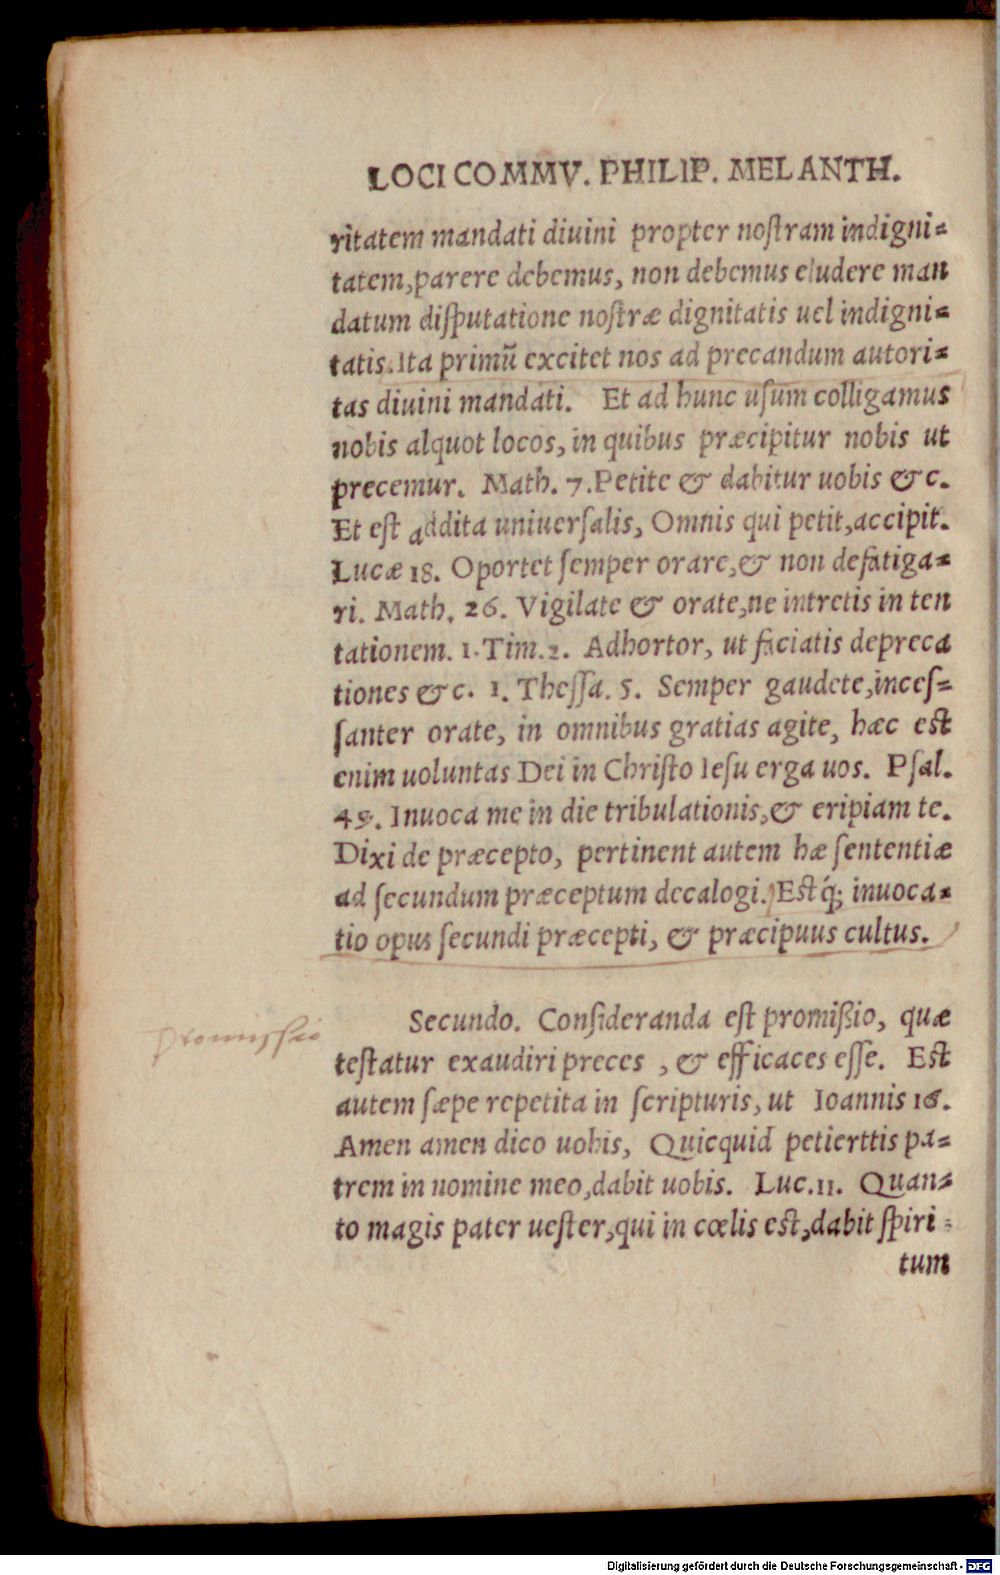 LOCI COMMV. PHILIP. MELANTH.
ritatem mandati diuini propter noſtram indigni=
tatem,parere debemus, non debemus eludere man
datum diſputatione noſtræ dignitatis uel indigni=
tatis.Ita primũ excitet nos ad precandum autori=
tas diuini mandati. Et ad hunc uſum colligamus
nobis alquot locos, in quibus præcipitur nobis ut
precemur. Math. 7.Petite & dabitur uobis & c.
Et eſt addita uniuerſalis, Omnis qui petit,accipit.
Lucæ 18. Oportet ſemper orare,& non defatiga=
ri. Math. 26. Vigilate & orate,ne intretis in ten
tationem. 1.Tim.2. Adhortor, ut faciatis depreca
tiones & c. 1. Theſſa. 5. Semper gaudete,inceſ=
ſanter orate, in omnibus gratias agite, hæc eſt
enim uoluntas Dei in Chriſto Ieſu erga uos. Pſal.
49. Inuoca me in die tribulationis,& eripiam te.
Dixi de præcepto, pertinent autem hæ ſententiæ
ad ſecundum præceptum decalogi. Eſtq́; inuoca=
tio opus ſecundi præcepti, & præcipuus cultus.
Secundo. Conſideranda eſt promiſsio, quæ
promissio
teſtatur exaudiri preces , & efficaces eſſe. Eſt
autem ſæpe repetita in ſcripturis, ut Ioannis 16.
Amen amen dico uobis, Quicquid petierttis pa=
trem in nomine meo,dabit uobis. Luc.11. Quan=
to magis pater ueſter,qui in cœlis eſt,dabit ſpiri=
tum
Digitalisierung gefördert durch die Deutsche Forschungsgemeinschaft - DFG